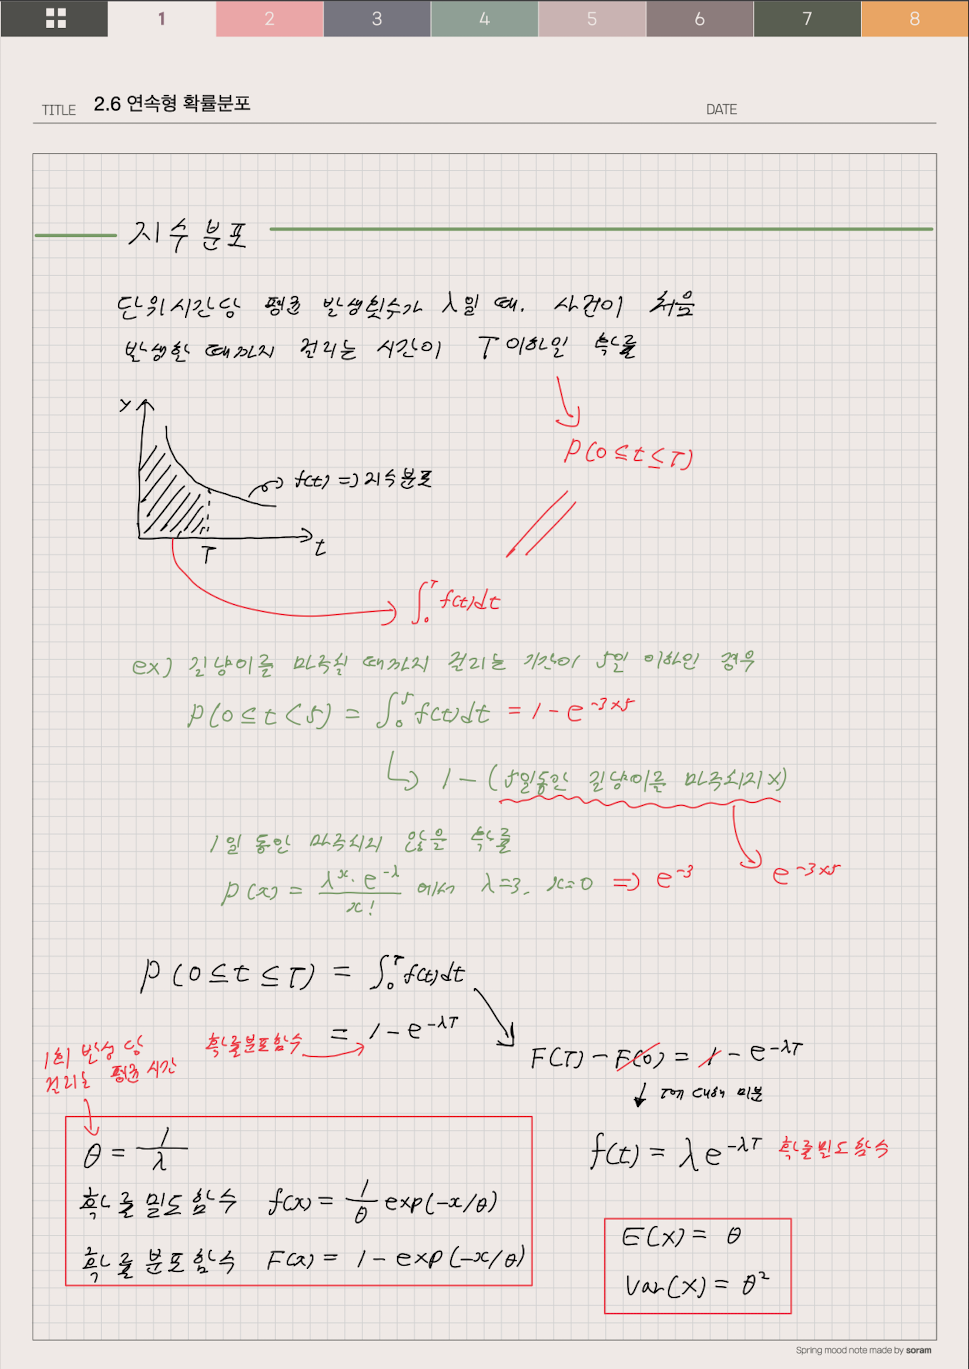 1 2 3 4 5 6 7 8
TITLE 2.6 연속형 확률분포 DATE
지수분포
단위시간당 평균 발생횟수가 λ일 때, 사건이 처음
발생할 때까지 걸리는 시간이 T이하일 확률
P(0≤t≤T)
y
f(t) => 지수분포
T
t
∫₀ᵀ f(t)dt
ex) 길냥이를 마주칠 때까지 걸리는 기간이 5일 이하인 경우
P(0≤t<5) = ∫₀⁵ f(t)dt = 1-e^{-3×5}
↳ 1-(5일동안 길냥이를 마주치지X)
1일 동안 마주치지 않을 확률
P(x) = λ^x·e^{-λ}/x! 에서 λ=3, x=0 => e^{-3}
e^{-3×5}
P(0≤t≤T) = ∫₀ᵀ f(t)dt
= 1-e^{-λT}
확률분포함수
1회 발생 당
걸리는 평균 시간
F(T)-F(0) = 1-e^{-λT}
T에 대해 미분
f(t) = λe^{-λT} 확률밀도함수
θ = 1/λ
확률 밀도 함수 f(x) = 1/θ exp(-x/θ)
확률 분포 함수 F(x) = 1-exp(-x/θ)
E(X) = θ
Var(X) = θ²
Spring mood note made by soram